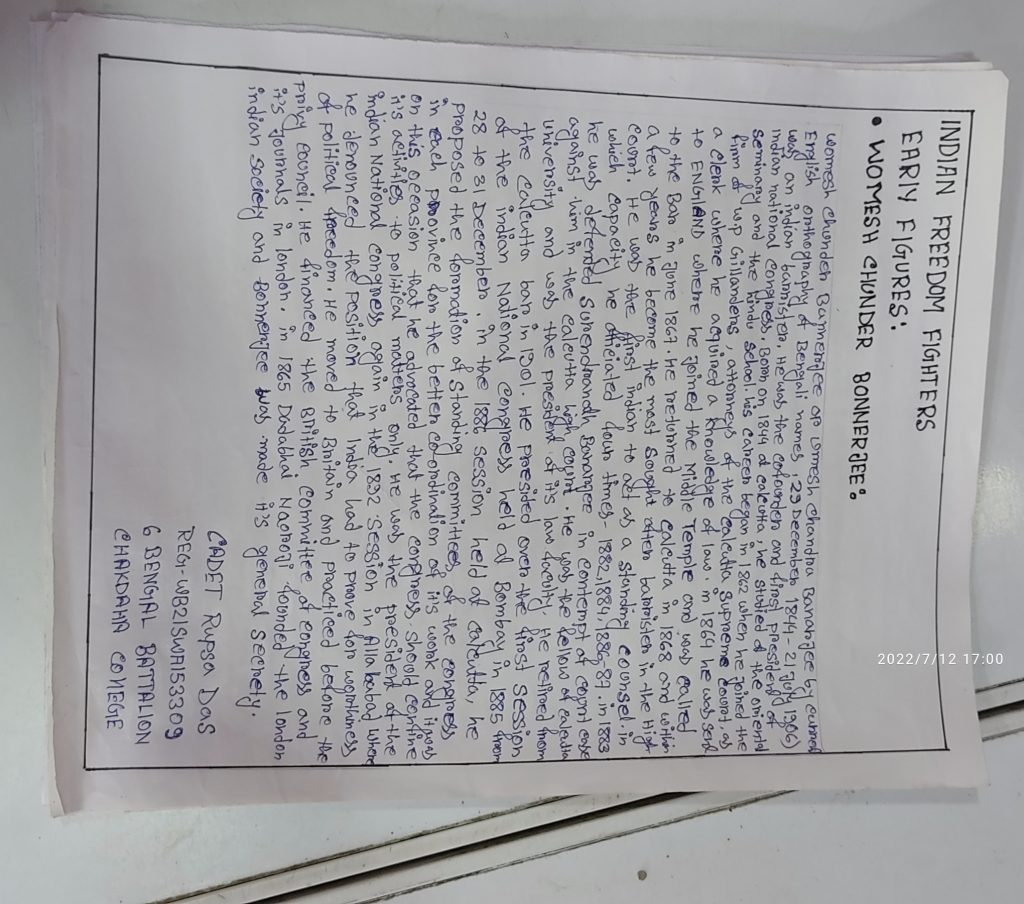 INDIAN FREEDOM FIGHTERS
EARIY FIGURES:
• WOMESH CHUNDER BONNERJEE:
womesh chunder Bannerjee or umesh chandra Bananjee by
English orthography of Bengali names, 29 December 1844-21 july 1906)
was an indian barrister. He was the cofounder and first president of
indian national congress. Born on 1844 at calcutta, he studied at the oriental
seminary and the hindu school. his career began in 1862 when he joined the
firm of wp Gillanders, attorneys of the calcutta supreme court, as
a clerk where he acquired a knowledge of law. in 1864 he was sent
to ENGlAND where he joined the Middle Temple and was called
to the Bar in june 1867. He returned to calcutta in 1868 and within
a few years he become the most sought after barrister in the High
court. He was the first indian to act as a standing counsel, in
which capacity he officiated four times- 1882,1884,1886-87. in 1883
he was defended Surendranath Bananjee in contempt of court case
against him in the calcutta high court. He was the fellow of calcutta
university and was the president of it's law faculty. He retired from
the calcutta bar in 1901. He presided over the first session
of the indian National congress held at Bombay in 1885 from
28 to 31 December. in the 1886 session held at calcutta, he
proposed the formation of standing committees of the congress
in each province for the better co-ordination of it's work and it was
on this occasion that he advocated that the congress should confine
it's activities to political matters only. He was the president of the
indian National congress again in the 1892 session in Allahabad where
he denounced the position that India had to prove for worthiness
of political freedom. He moved to Britain and practiced before the
privy council. He financed the British committee of congress and
it's journals in london. in 1865 Dadabhai Naoroji founded the london
indian society and Bonnerjee was made it's general secretry.
CADET Rupsa Das
REGI-WB21SWA153309
6 BENGIAL BATTALION
CHAKDAHA COllEGIE
2022/7/12 17:00